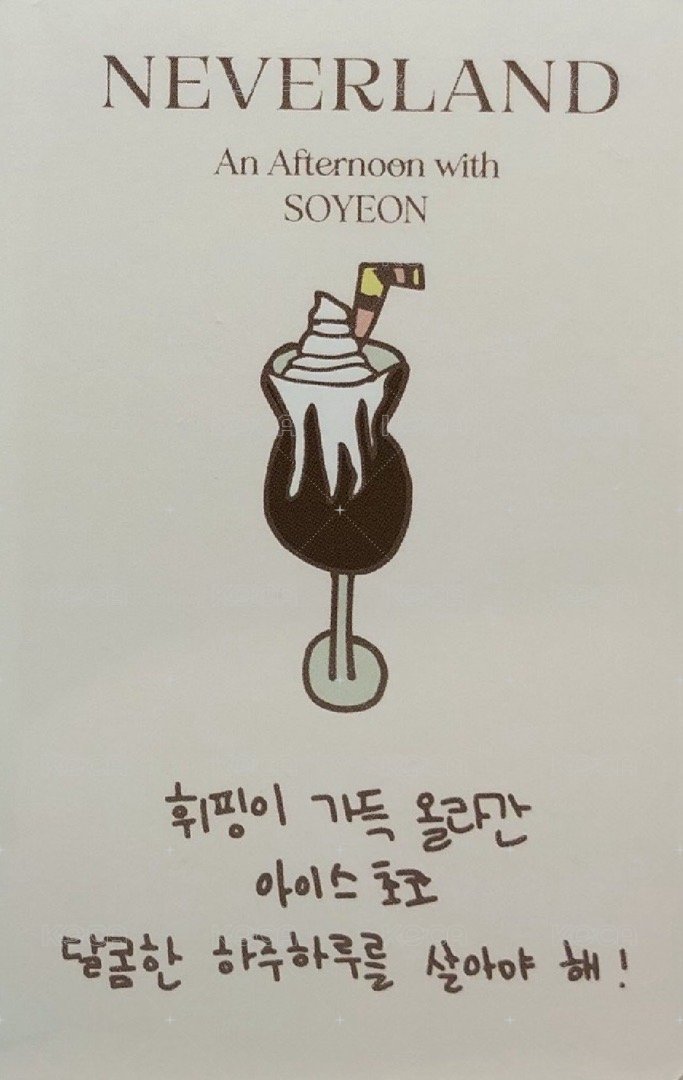 NEVERLAND
An Afternoon with
SOYEON
휘핑이 가득 올라간
아이스 초코
달콤한 하주하루를 살아야 해!